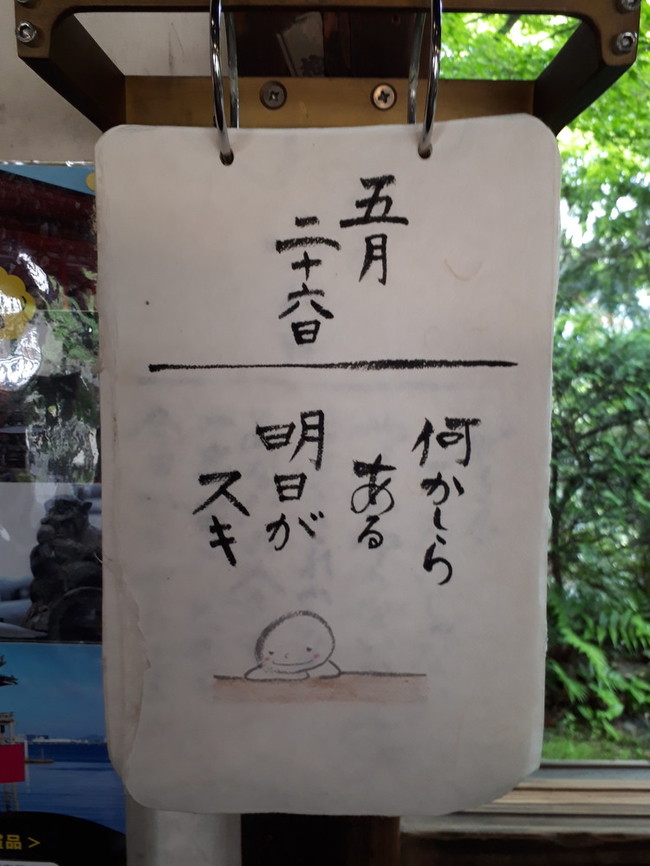 五月
二十六日
何かしら
ある
明日が
スキ
品 >